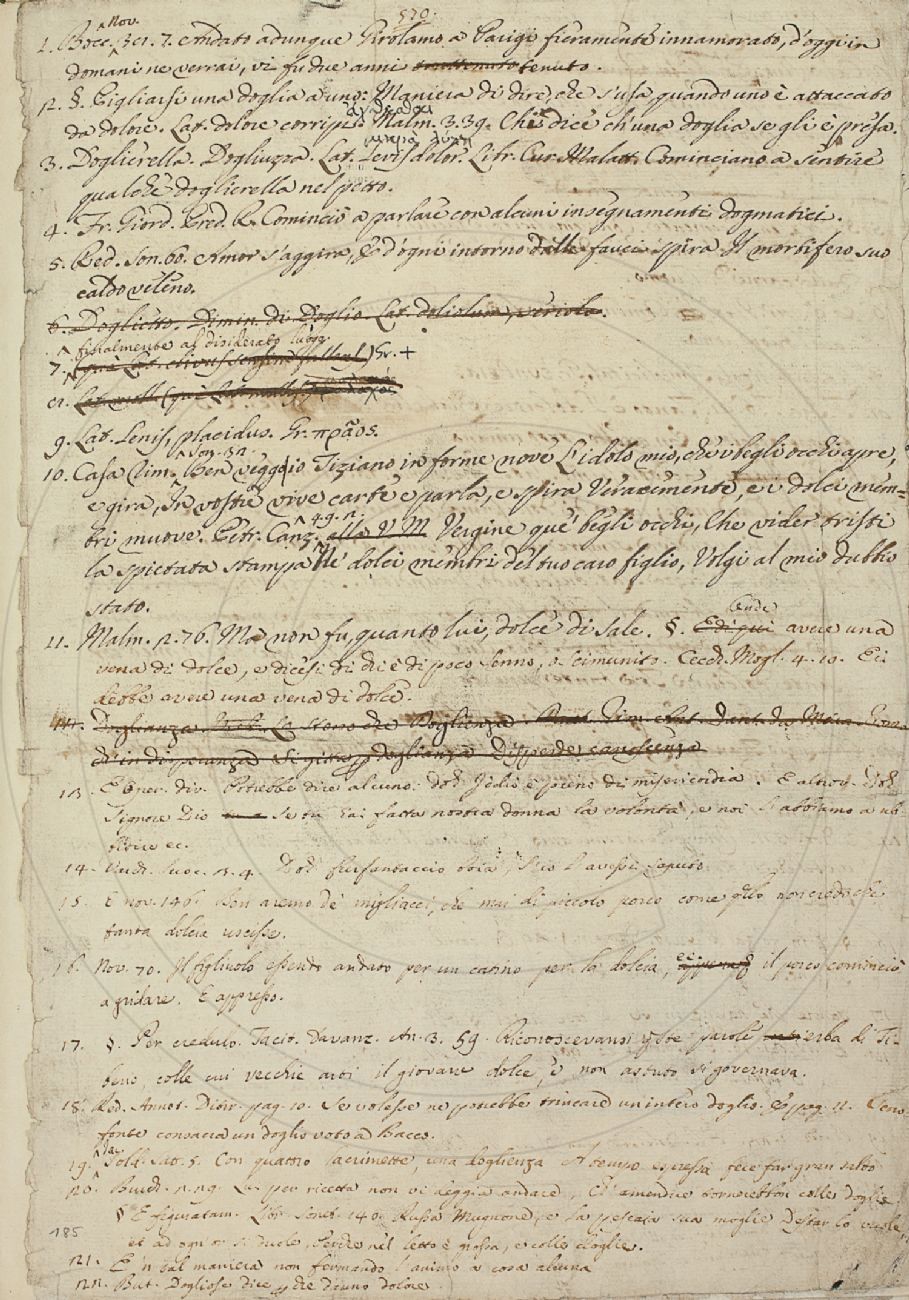 520.
1. Bocc. Nov. 3 7. Andato adunque Girolamo a Parigi fieramente innamorato, d'oggi in
domani ne verrai, vi fu due anni tenuto.
12. §. Pigliarsi una doglia a uno: Maniera di dire, che s'usa quando uno è attaccato
da dolore. Lat. dolore corripi. Malm. 3. 39. Chi dice ch'una doglia se gli è presa.
3. Doglierella. Dogliuzza. Lat. levis dolor. Libr. Cur. Malatt. Cominciano a sentire
qualche doglierella nel petto.
4. Fr. Giord. Pred. R. Cominciò a parlare con alcuni insegnamenti dogmatici.
5. Red. Son. 60. Amor s'aggira, E d'ogni intorno dalle fauci spira Il mortifero suo
caldo veleno.
6. Doglietto. Dimin. di Doglio. Lat. doliolum, seriola.
finalmente al disiderato luogo
7. Gr. +
9. Lat. Lenis, placidus. Gr. πρᾶος.
10. Casa Rim. Son. Ben veggio Tiziano in forme nove L'idolo mio, che i begli occhi apre,
e gira, In vostre vive carte e parla, e spira Veracemente, e i dolci mem-
bri muove. Petr. Canz. 49. Vergine que' begli occhi, Che vider tristi
la spietata stampa Ne' dolci membri del tuo caro figlio, Volgi al mio dubbio
stato.
11. Malm. 2. 76. Ma non fu, quanto lui, dolce di sale. §. avere una
vena di dolce, e dicesi di chi è di poco senno, o scimunito. Cecch. Mogl. 4. 10. Ei
debbe avere una vena di dolce.
Doglianza. Lo stesso che Doglienza.
13. E Oper. div. Potrebbe dire alcuno: Iddio è pieno di misericordia. E altrove:
Signore Dio se tu hai fatta nostra donna la volontà, e noi si abbiamo a ub-
bidire ec.
14. Buon. Suoc. 4.
15. E nov. 146. Ben aremo de' migliacci, che mai di piccolo porco come non credo che
tanta dolcia uscisse.
16. Nov. 70. Il figliuolo essendo andato per un catino per la dolcia, ec. il porco cominciò
a gridare. E appresso.
17. §. Per credulo. Tacit. Davanz. An. 3. 59. Riconoscevansi parole erba di Ti-
berio, colle cui vecchie arti il giovane dolce, e non astuto si governava.
18. Red. Annot. Ditir. pag. 10. Se volesse ne potrebbe trincare un intero doglio. E pag. 11. Seno-
fonte consacra un doglio voto a Bacco.
19. Sold. Sat. 5. Con quattro lacrimette, una doglienza A tempo espressa fece far gran salto
20. per ricetta non vi deggia andare, Ch'amendue tornerebbon colle doglie.
§ E figuratam. Libr. Son. 140. Russa Mugnone, e la pescaia sua moglie Destar lo vuole,
et ad ogn'or si duole, Perde nel letto è grossa, e colle doglie.
121. E 'n tal maniera non fermando l'animo a cosa alcuna
122. But. Dogliose dice, che danno dolore.
185